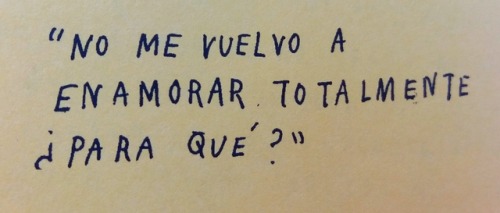 "NO ME VUELVO A
ENAMORAR TOTALMENTE
¿PARA QUÉ?"